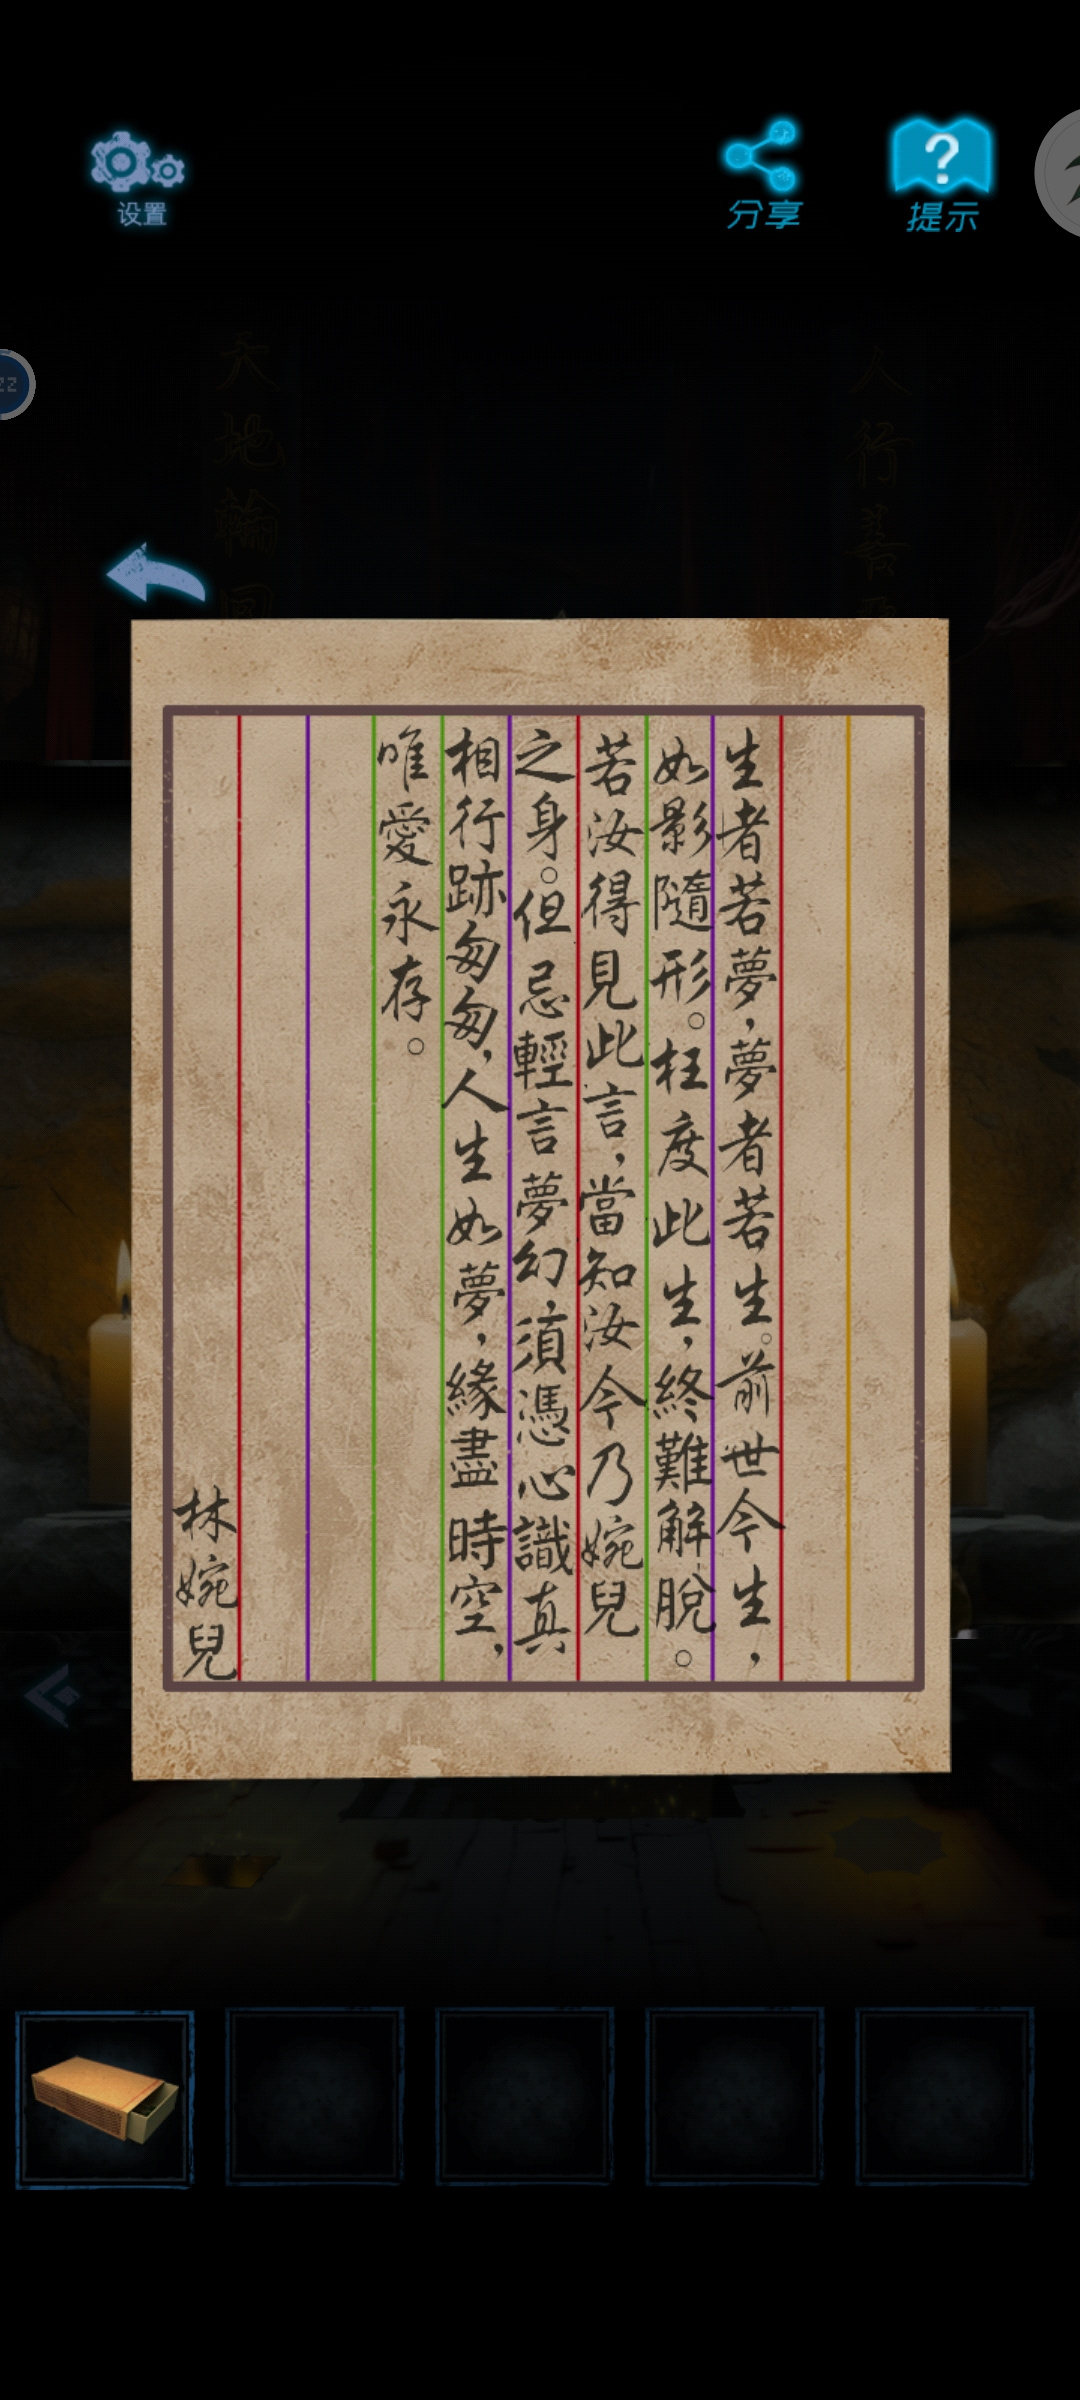 设置
分享
提示
22
天地輪回
人行善
生者若夢,夢者若生。前世今生,
如影隨形。枉度此生,終難解脫。
若汝得見此言,當知汝今乃婉兒
之身。但忌輕言夢幻,須憑心識真
相行跡匆匆,人生如夢,緣盡時空,
唯愛永存。
林婉兒